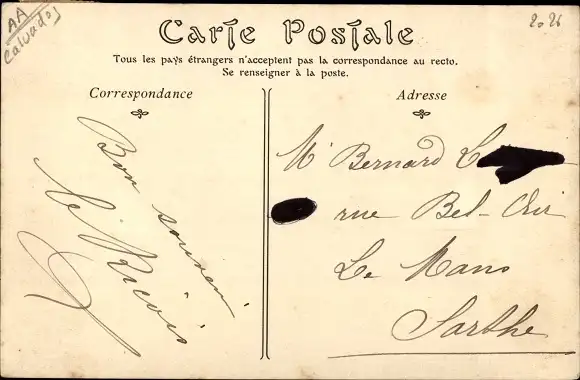 AA
Calvados
20 26
Carte Postale
Tous les pays étrangers n'acceptent pas la correspondance au recto.
Se renseigner à la poste.
Correspondance
Adresse
Bon souvenir
Mr Bernard L
rue Bel-Air
Le Mans
Sarthe